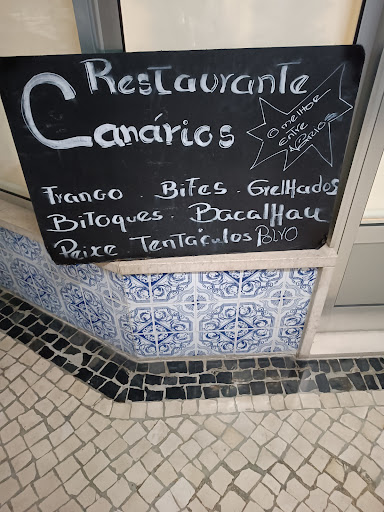 Restaurante
Canários
O melhor
entre
Frango. Bifes. Grelhados
Bitoques. Bacalhau
Peixe Tentáculos Polvo